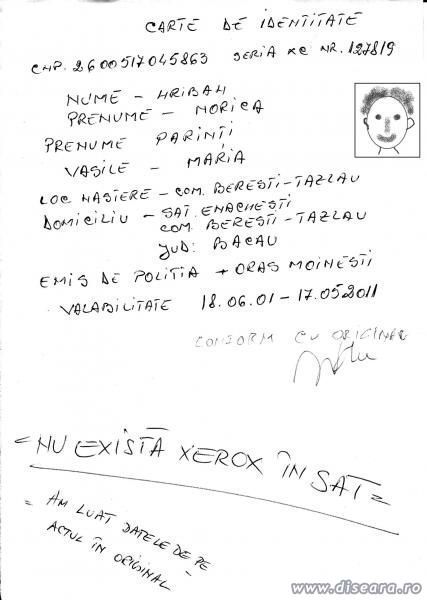 CARTE DE IDENTITATE
CNP. 2600517045863 SERIA XC NR. 127819
NUME – HRIBAH
PRENUME – NORICA
PRENUME PARINȚI
VASILE – MARIA
LOC NASTERE – COM. BERESTI-TAZLAU
DOMICILIU – SAT. ENACHESTI
COM. BERESTI-TAZLAU
JUD: BACAU
EMIS DE POLITIA + ORAS MOINESTI
VALABILITATE 18.06.01 – 17.052011
CONFORM CU ORIGINAL
= NU EXISTĂ XEROX ÎN SAT =
= AM LUAT DATELE DE PE
ACTUL ÎN ORIGINAL =
www.diseara.ro